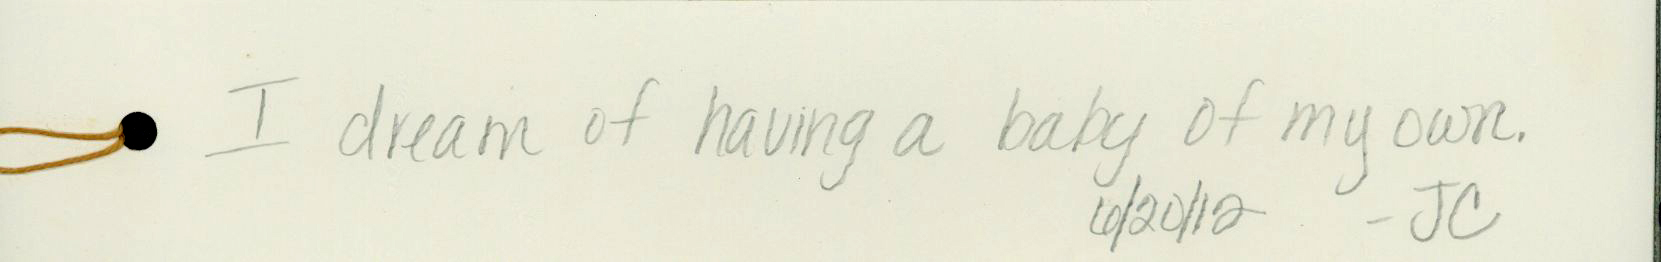 I dream of having a baby of my own.
6/20/12 - JC